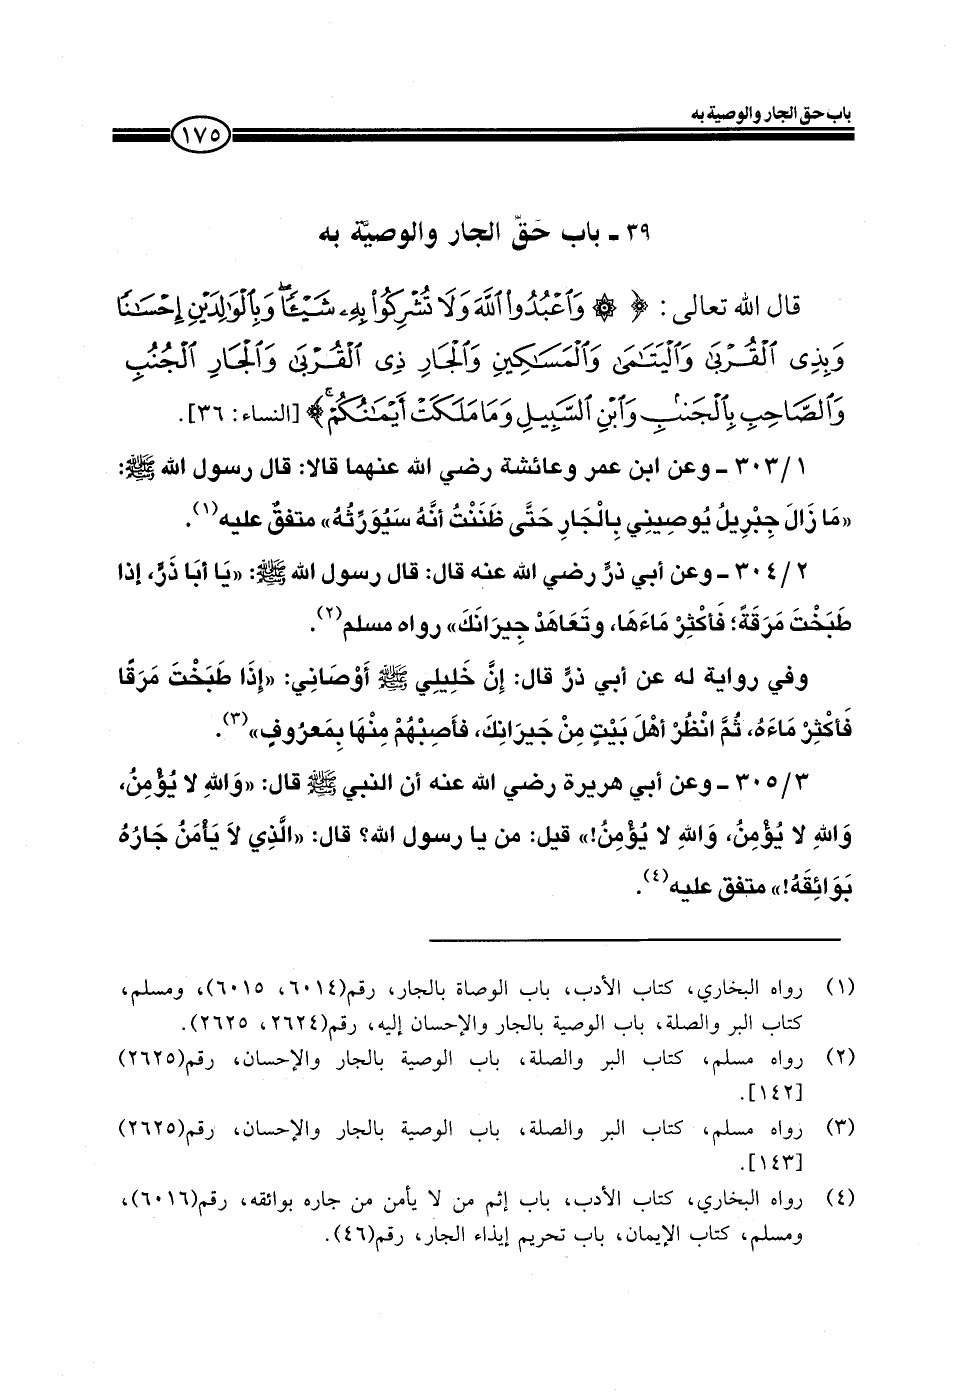 باب حق الجار والوصية به
١٧٥
٣٩ ـ باب حَقّ الجار والوصيَّة به
قال الله تعالى: ﴿ ۞ وَٱعْبُدُوا۟ ٱللَّهَ وَلَا تُشْرِكُوا۟ بِهِۦ شَيْـًٔا ۖ وَبِٱلْوَٰلِدَيْنِ إِحْسَـٰنًا
وَبِذِى ٱلْقُرْبَىٰ وَٱلْيَتَـٰمَىٰ وَٱلْمَسَـٰكِينِ وَٱلْجَارِ ذِى ٱلْقُرْبَىٰ وَٱلْجَارِ ٱلْجُنُبِ
وَٱلصَّاحِبِ بِٱلْجَنۢبِ وَٱبْنِ ٱلسَّبِيلِ وَمَا مَلَكَتْ أَيْمَـٰنُكُمْ ۚ ﴾ [النساء: ٣٦].
٣٠٣/١ ـ وعن ابن عمر وعائشة رضي الله عنهما قالا: قال رسول الله ﷺ:
«مَا زَالَ جِبْرِيلُ يُوصِيني بِالْجَارِ حَتَّى ظَنَنْتُ أنَّهُ سَيُوَرِّثُهُ» متفقٌ عليه(١).
٣٠٤/٢ ـ وعن أبي ذرٍّ رضي الله عنه قال: قال رسول الله ﷺ: «يَا أبَا ذَرٍّ، إذا
طَبَخْتَ مَرَقَةً؛ فَأكْثِرْ مَاءَهَا، وتَعَاهَدْ جِيرَانَكَ» رواه مسلم(٢).
وفي رواية له عن أبي ذرٍّ قال: إنَّ خَلِيلِي ﷺ أَوْصَانِي: «إِذَا طَبَخْتَ مَرَقًا
فَأكْثِرْ مَاءَهُ، ثُمَّ انْظُرْ أهْلَ بَيْتٍ مِنْ جِيرَانِكَ، فأَصِبْهُمْ مِنْهَا بِمَعرُوفٍ»(٣).
٣٠٥/٣ ـ وعن أبي هريرة رضي الله عنه أن النبي ﷺ قال: «وَاللهِ لا يُؤْمِنُ،
وَاللهِ لا يُؤْمِنُ، وَاللهِ لا يُؤْمِنُ!» قيل: من يا رسول الله؟ قال: «الَّذِي لاَ يَأْمَنُ جَارُهُ
بَوَائِقَهُ!» متفق عليه(٤).
(١) رواه البخاري، كتاب الأدب، باب الوصاة بالجار، رقم(٦٠١٤، ٦٠١٥)، ومسلم،
كتاب البر والصلة، باب الوصية بالجار والإحسان إليه، رقم(٢٦٢٤، ٢٦٢٥).
(٢) رواه مسلم، كتاب البر والصلة، باب الوصية بالجار والإحسان، رقم(٢٦٢٥)
[١٤٢].
(٣) رواه مسلم، كتاب البر والصلة، باب الوصية بالجار والإحسان، رقم(٢٦٢٥)
[١٤٣].
(٤) رواه البخاري، كتاب الأدب، باب إثم من لا يأمن من جاره بوائقه، رقم(٦٠١٦)،
ومسلم، كتاب الإيمان، باب تحريم إيذاء الجار، رقم(٤٦).